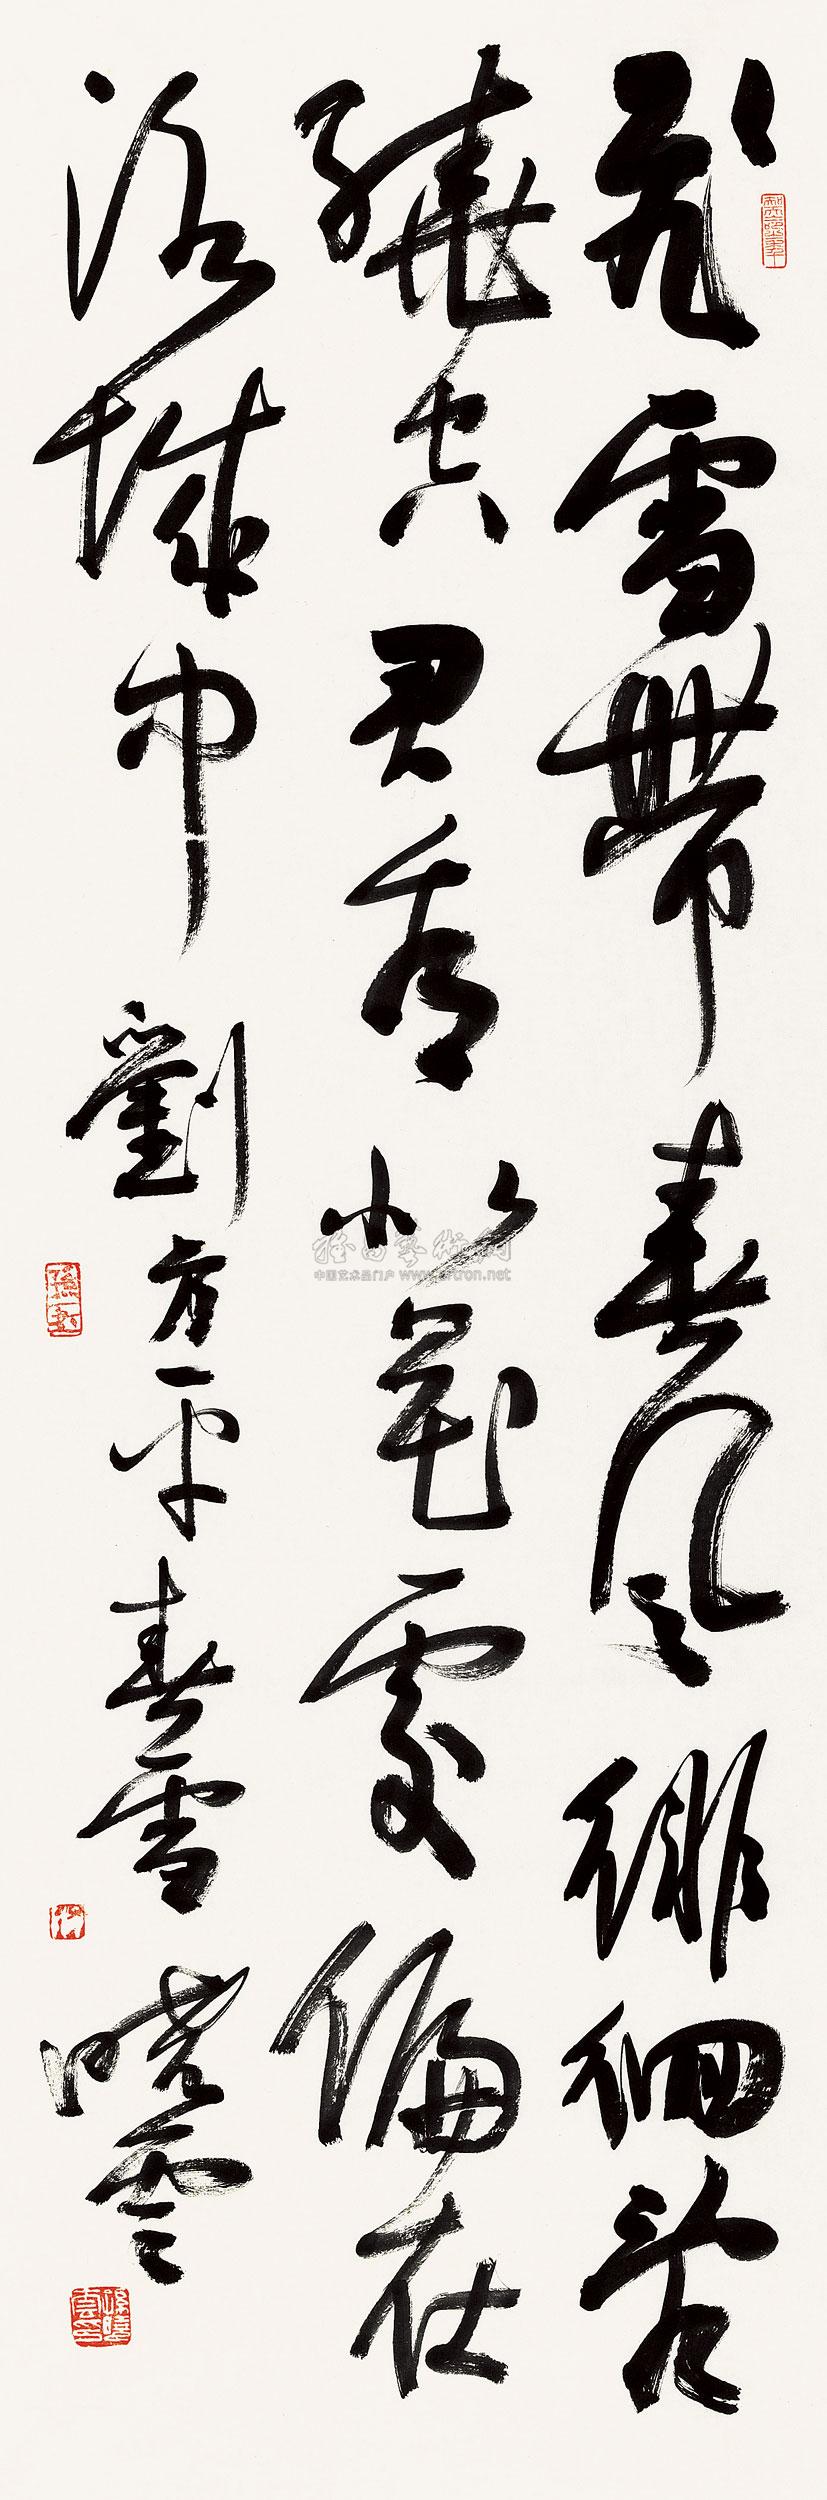 飛雪帶春風徘徊亂
繞空君看似花處偏在
洛城中 劉方平春雪 曉雲
雅昌藝術網
中国艺术品门户 www.artron.net
孫曉雲印